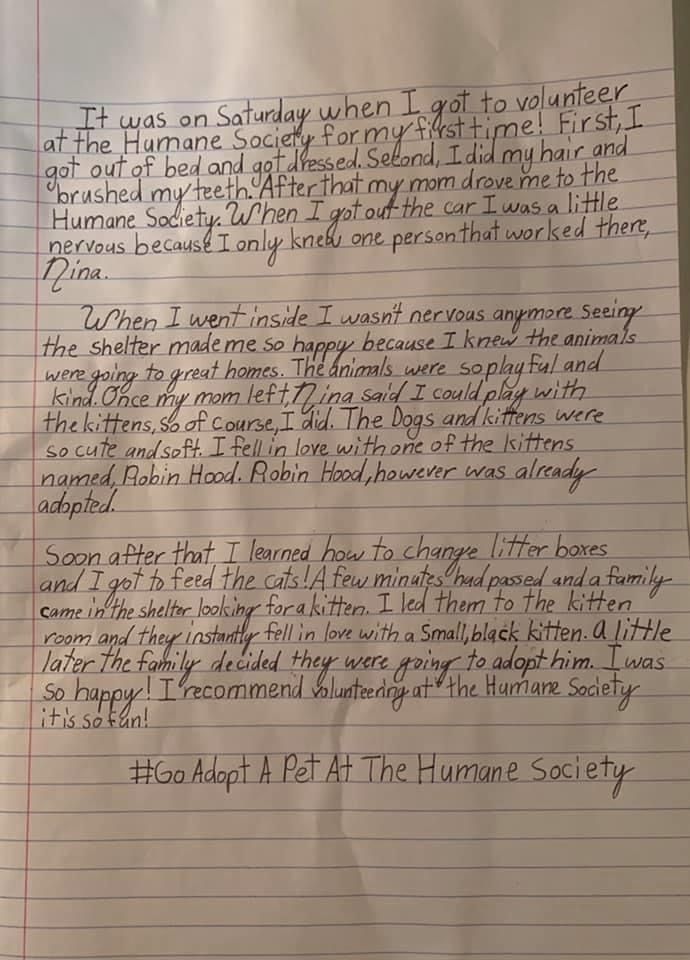 It was on Saturday when I got to volunteer
at the Humane Society for my first time! First, I
got out of bed and got dressed. Second, I did my hair and
brushed my teeth. After that my mom drove me to the
Humane Society. When I got out the car I was a little
nervous because I only knew one person that worked there,
Nina.
When I went inside I wasn't nervous anymore seeing
the shelter made me so happy because I knew the animals
were going to great homes. The animals were so playful and
kind. Once my mom left, Nina said I could play with
the kittens, so of course, I did. The Dogs and kittens were
so cute and soft. I fell in love with one of the kittens
named, Robin Hood. Robin Hood, however was already
adopted.
Soon after that I learned how to change litter boxes
and I got to feed the cats! A few minutes had passed and a family
came in the shelter looking for a kitten. I led them to the kitten
room and they instantly fell in love with a small, black kitten. A little
later the family decided they were going to adopt him. I was
so happy! I recommend volunteering at the Humane Society
it is so fun!
#Go Adopt A Pet At The Humane Society